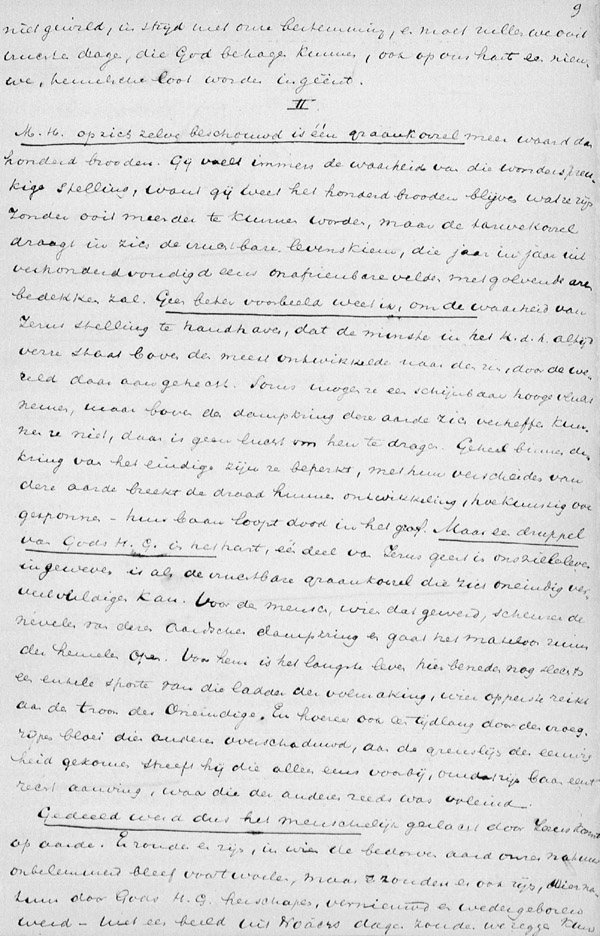 9
niet geïveld, in strijd met onze bestemming, en moet zullen we ooit
vruchten dragen, die God behagen kunnen, ook op ons hart een nieu-
we, hemelsche loot worden ingeënt.
II
M. H. op zich zelve beschouwd is één graankorrel meer waard dan
honderd brooden. Gij voelt immers de waarheid van die wonderspreu-
kige stelling, want gij weet het honderd brooden blijven wat ze zijn
zonder ooit meerder te kunnen worden, maar de tarwekorrel
draagt in zich de vruchtbare levenskiem, die jaar in jaar uit
verhonderdvoudigd eens onafzienbare velden met golvende aren
bedekken zal. Geen beter voorbeeld weet ik, om de waarheid van
Jezus stelling te handhaven, dat de minste in het K. d. h. altijd
verre staat boven den meest ontwikkelde naar den zin, door de we-
reld daar aan gehecht. Soms mogen ze een schijnbaar hooge vlucht
nemen, maar boven den dampkring dezer aarde zich verheffen kun-
nen ze niet, daar is geen lucht om hen te dragen. Geheel binnen den
kring van het eindige zijn ze beperkt, met hun verscheiden van
deze aarde breekt de draad hunner ontwikkeling, hoe kunstig ook
gesponnen – hun baan loopt dood in het graf. Maar een druppel
van Gods H. G. in het hart, één deel van Jezus geest in ons zieleleven
ingeweven is als de vruchtbare graankorrel die zich oneindig ver-
menigvuldigen kan. Voor de mensch, wien dat gewerd, scheuren de
nevelen van dezen aardschen dampkring en gaat het mateloos ruim
der hemelen open. Voor hem is het langste leven hier beneden nog slechts
een enkele sporte van die ladder der volmaking, wier opperste reikt
aan de troon des Oneindige. En hoezeer ook een tijdlang door den vroeg-
rijpen bloei dien anderen overschaduwd, aan de grenslijn der eeuwig-
heid gekomen streeft hij die allen eens voorbij, omdat zijn baan eerst
recht aanving, waar die der anderen reeds was voleind.
Gedeeld werd dus het menschelijk geslacht door Jezus komst
op aarde. Er zonden er zijn, in wien de bedorven aard onzer natuur
onbelemmerd bleef voortwoelen, maar er zonden er ook zijn, wier na-
tuur door Gods H. G. herschapen, vernieuwd en wedergeboren
werd – met een beeld uit Noächs dagen zouden we zeggen